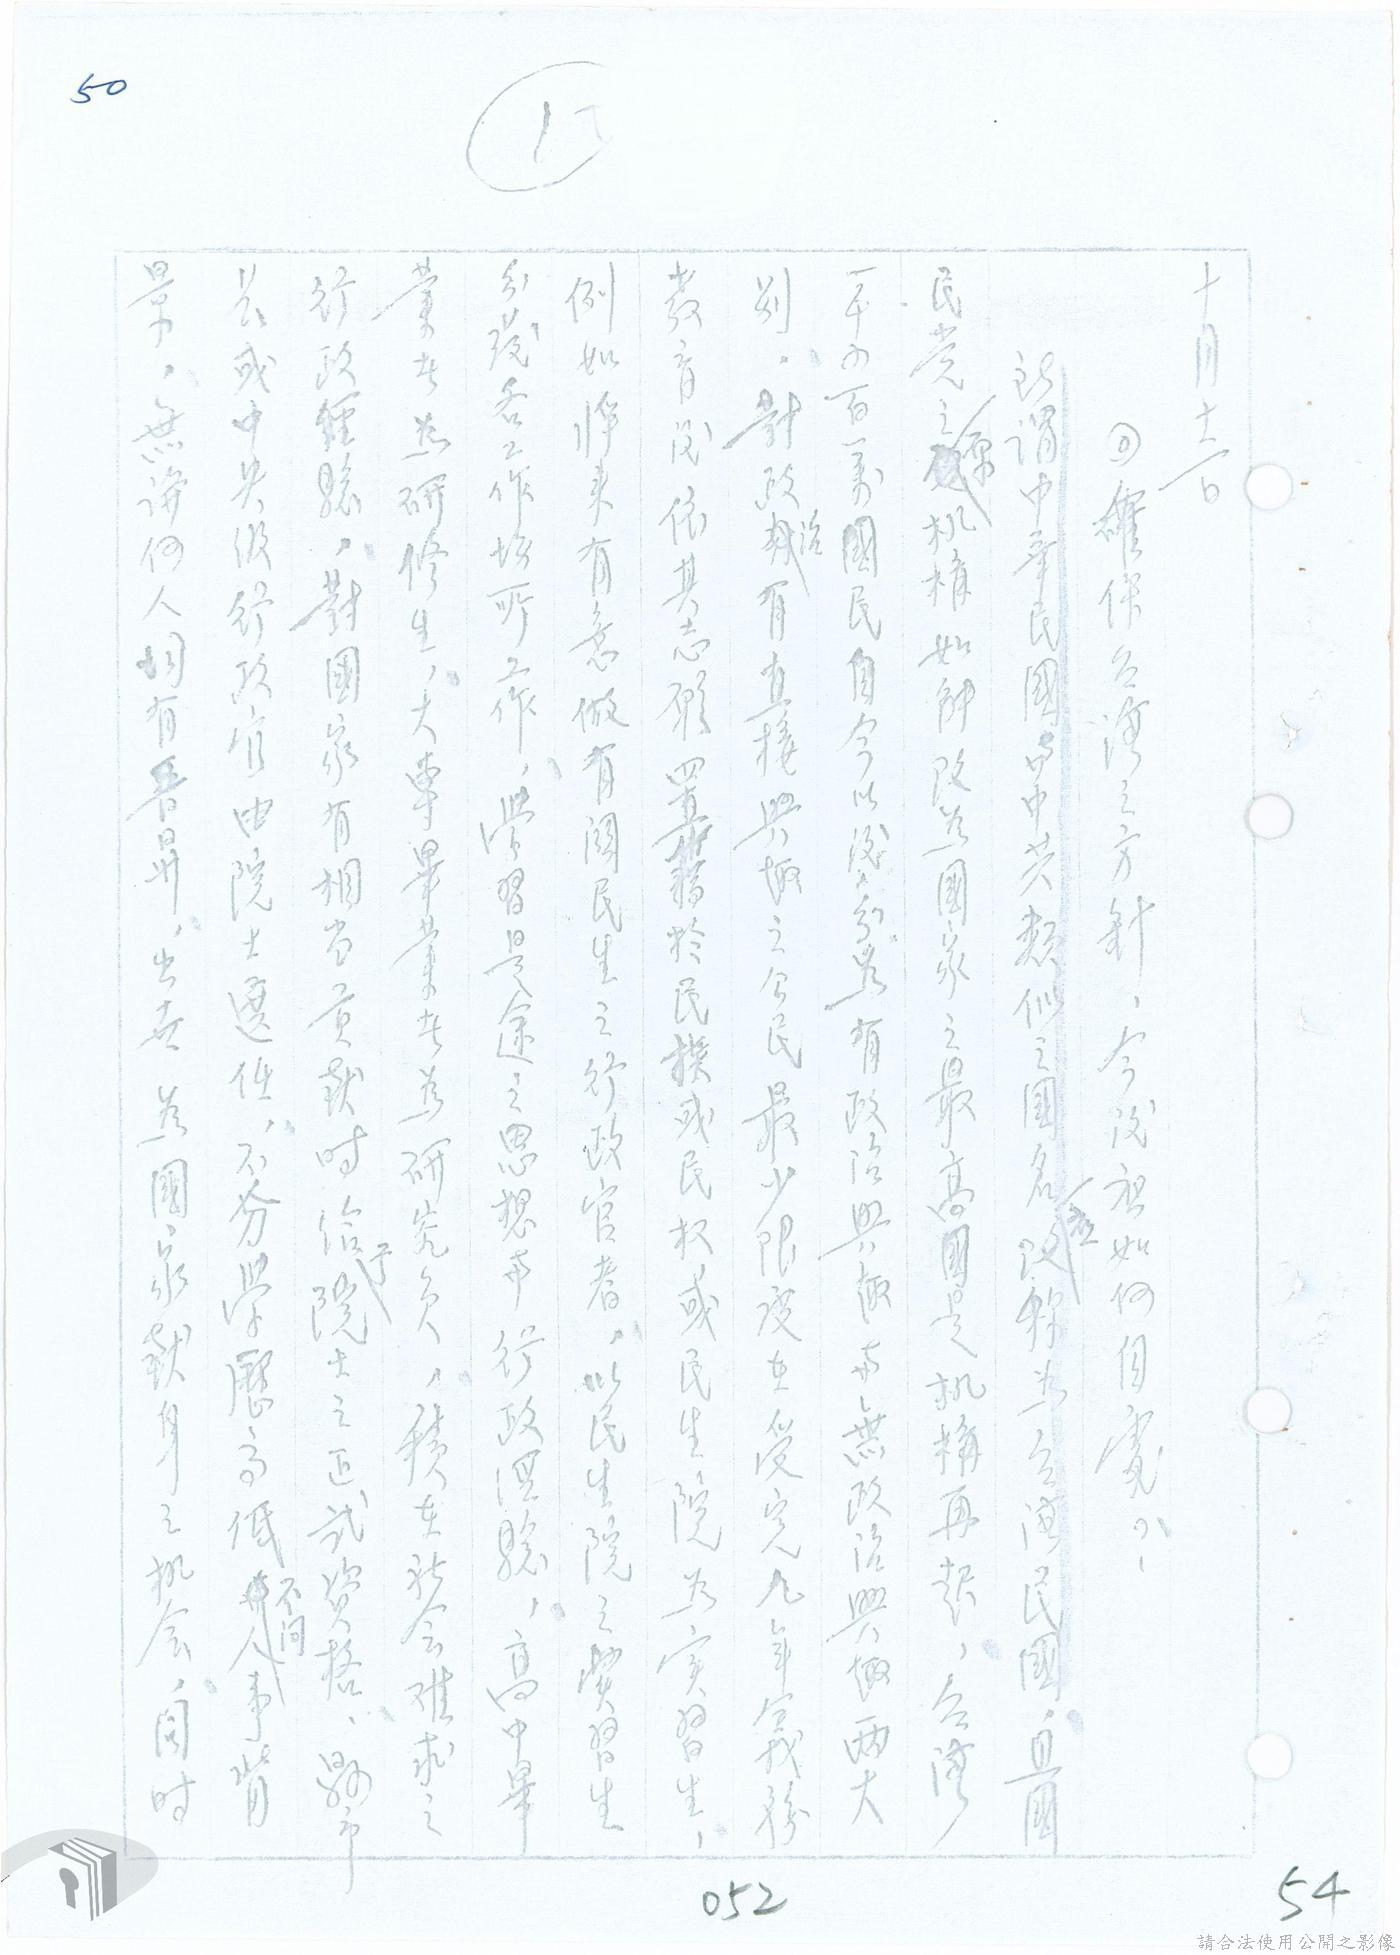 50
1
十月十一日
回確保台灣之方針,今後視如何自覺。
所謂中華民國与中共類似之國名改稱為台灣民國,且國
民党之原机構如能改為國家之最高國是机構再報,台灣
一千四百萬國民自今以後,分為有政治興趣与無政治興趣兩大
別,對政治有直接興趣之公民最少限度在受完九年義務
教育後依其志願置籍於民撰或民权或民生院為实習生,
例如將来有意做有関民生之行政官者,以民生院之實習生
分發各工作場所工作,學習是途之思想与行政經驗,高中畢
業者為研修生,大專畢業者為研究員,積在社会服務之
行政經驗,對國家有相当貢献時給予院士之正式資格,縣市
長或中央級行政官由院士選任,不分學歷高低不问人事背
景,無論何人均有晋昇,出去為國家献身之机会,同時
052
54
請合法使用公開之影像